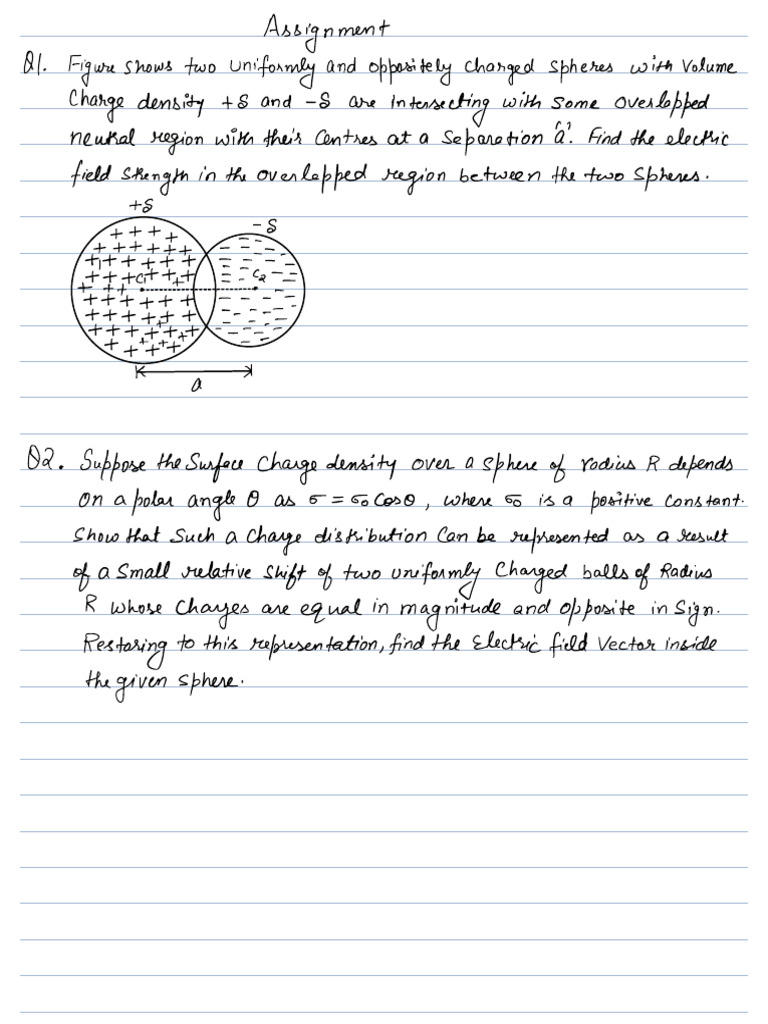 Assignment
Q1. Figure shows two uniformly and oppositely charged spheres with volume
Charge density +δ and -δ are intersecting with some overlapped
neutral region with their Centres at a Separation 'a'. Find the electric
field strength in the overlapped region between the two spheres.
+δ
-δ
C1
C2
a
Q2. Suppose the Surface Charge density over a sphere of radius R depends
on a polar angle θ as σ = σ0 Cosθ, where σ0 is a positive constant.
Show that Such a Charge distribution Can be represented as a result
of a Small relative Shift of two uniformly Charged balls of Radius
R whose Charges are equal in magnitude and opposite in Sign.
Restoring to this representation, find the Electric field Vector inside
the given sphere.